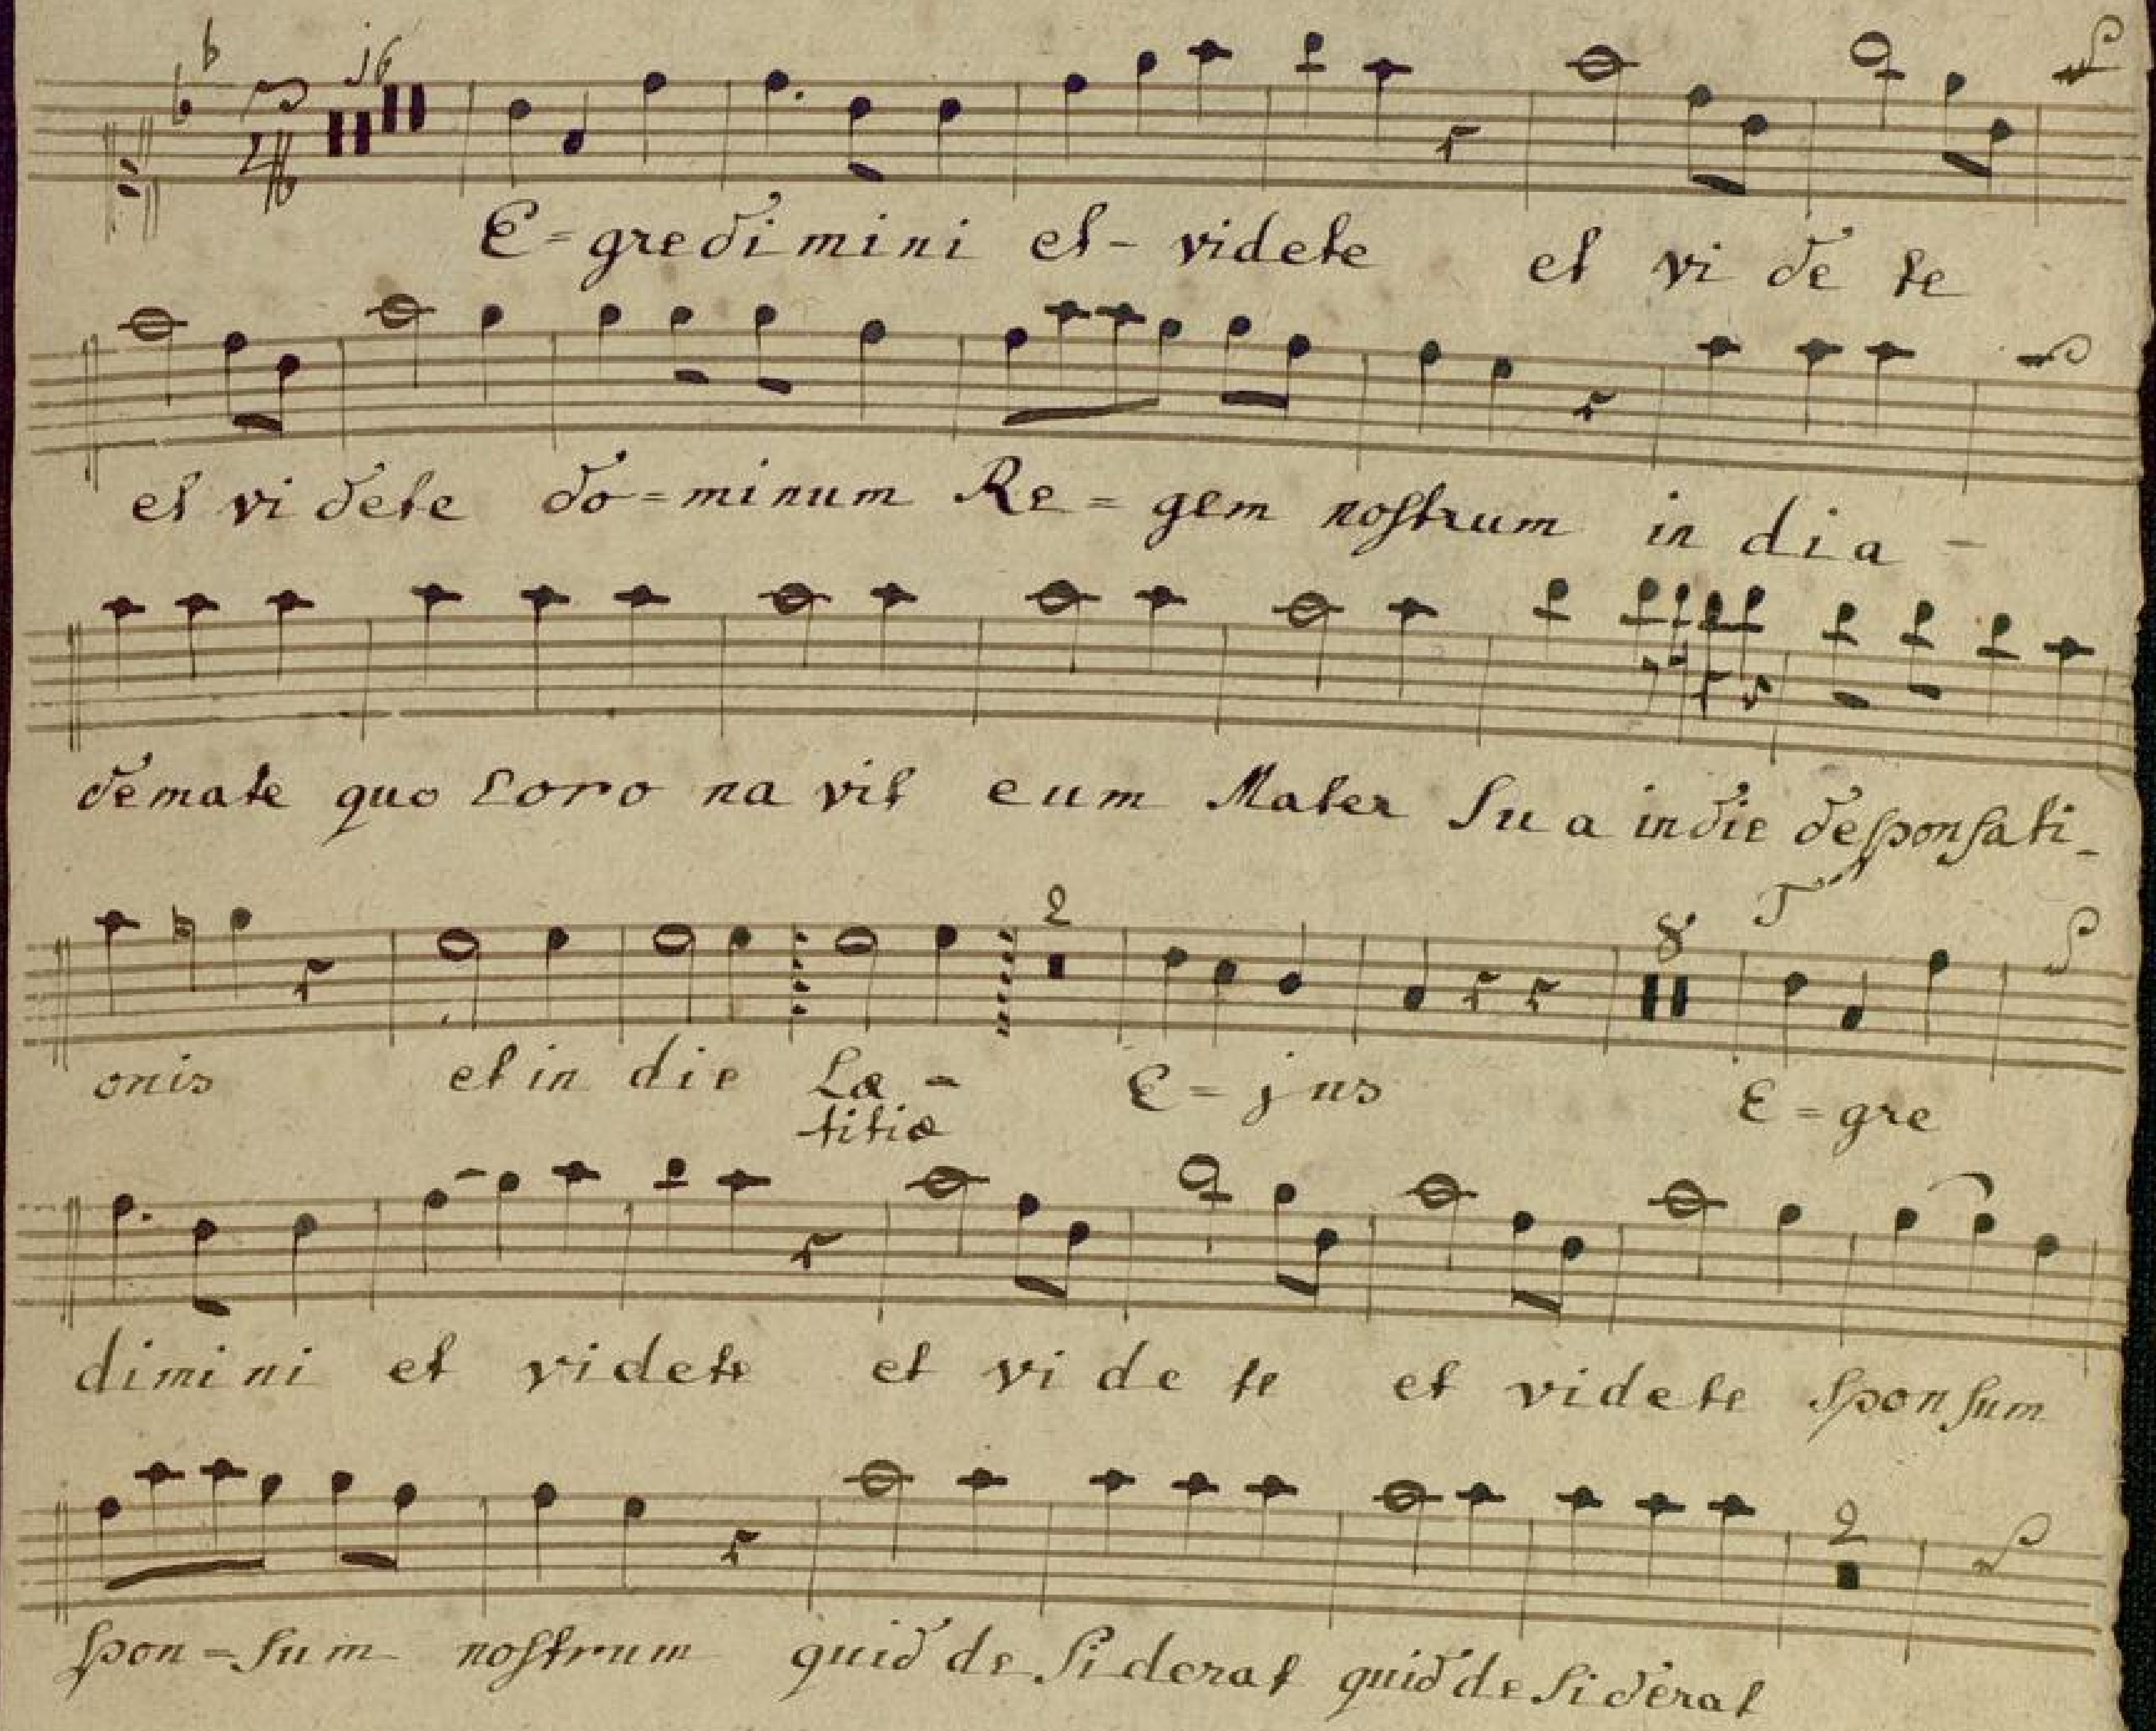 16
E=gredimini et- videte et vi de te
et videte do=minum Re=gem nostrum in dia-
demate quo coro na vit eum Mater Su a in die desponsati-
2
8
T
onis et in die Læ- E=jus E=gre
titiæ
dimini et videte et vi de te et videte Sponsum
2
spon=sum nostrum quid de siderat quid de siderat